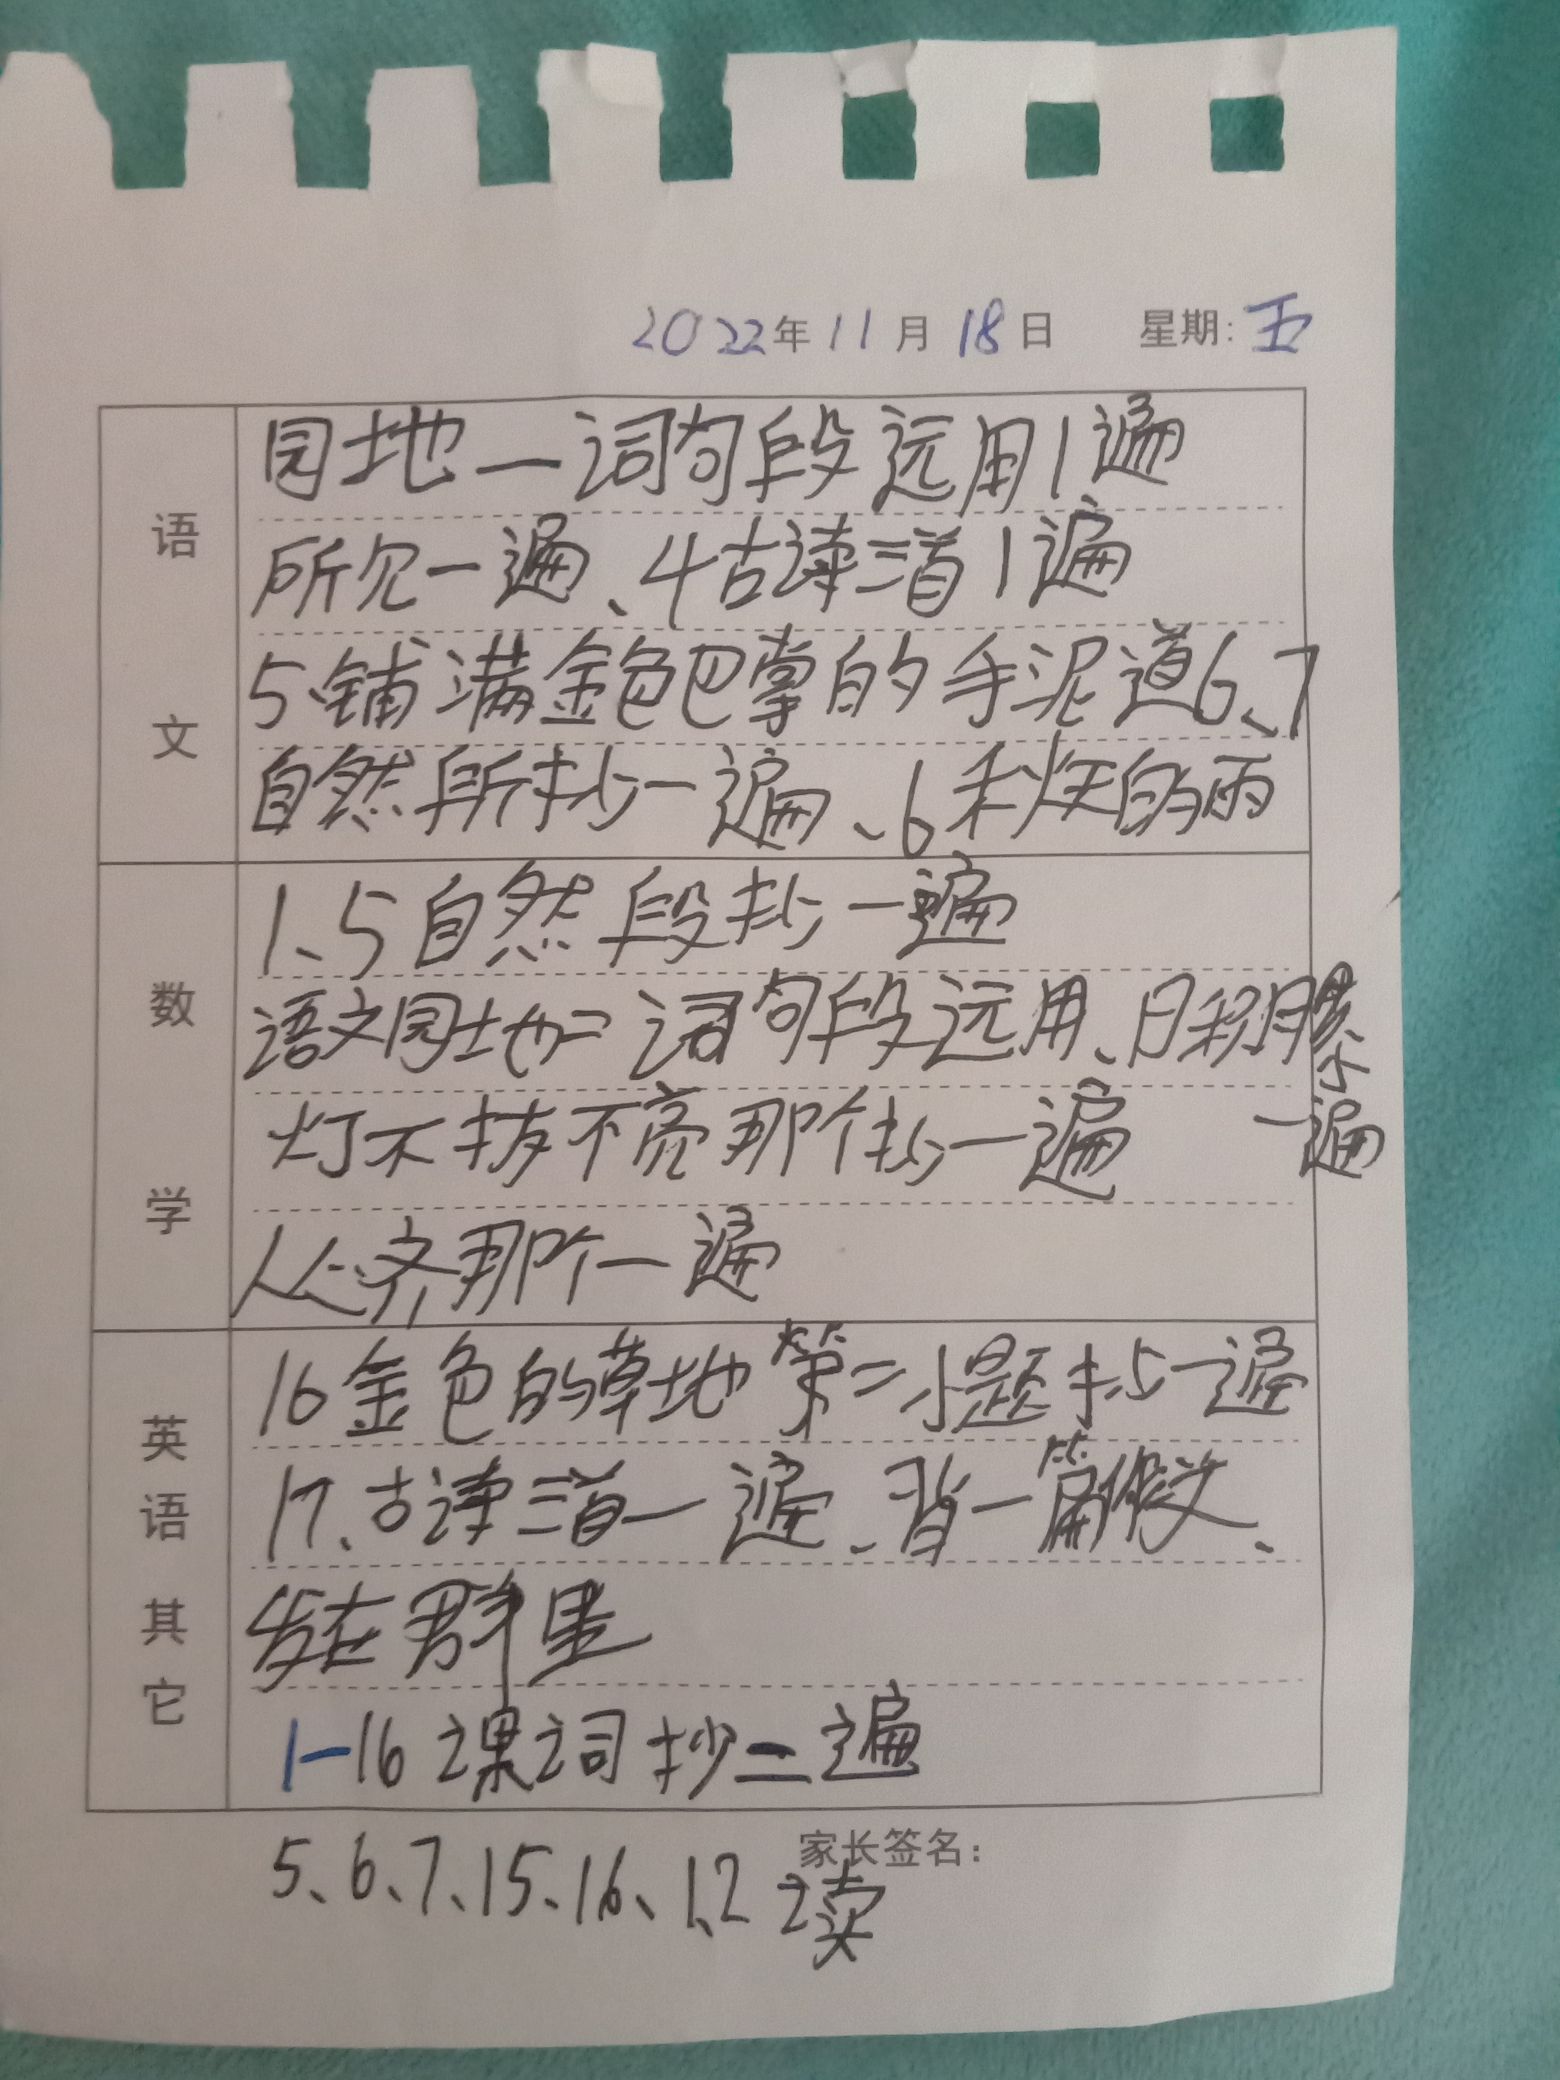 2022年11月18日 星期:五
语文
园地一词句段远用1遍
所见一遍、4古诗三首1遍
5铺满金色巴掌的手泥道6、7
自然段所抄一遍、6秋天的雨
数学
1、5自然段抄一遍
语文园地二词句段远用、日积月累
一遍
灯不拨不亮那个抄一遍
人心齐那个一遍
英语其它
16金色的草地第二小题抄一遍
17、古诗三首一遍、背一篇作文、
发在群里
1-16课词抄二遍
家长签名:
5、6、7、15、16、1、2读